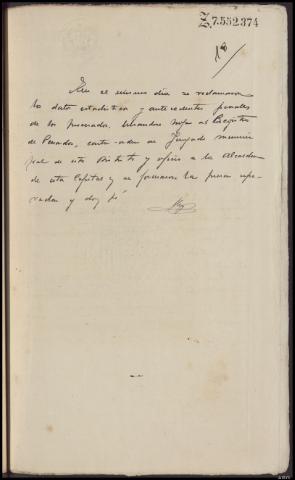 Z.7.552.374
En el mismo dia se reclamaron
los datos estadisticos y antecedentes penales
de los procesados, librandose oficio al Registro
de Penados, carta-orden al Juzgado munici
pal de este Distrito y oficio a la Alcaldia
de esta Capital y se formaron las piezas sepa-
radas y doy fé